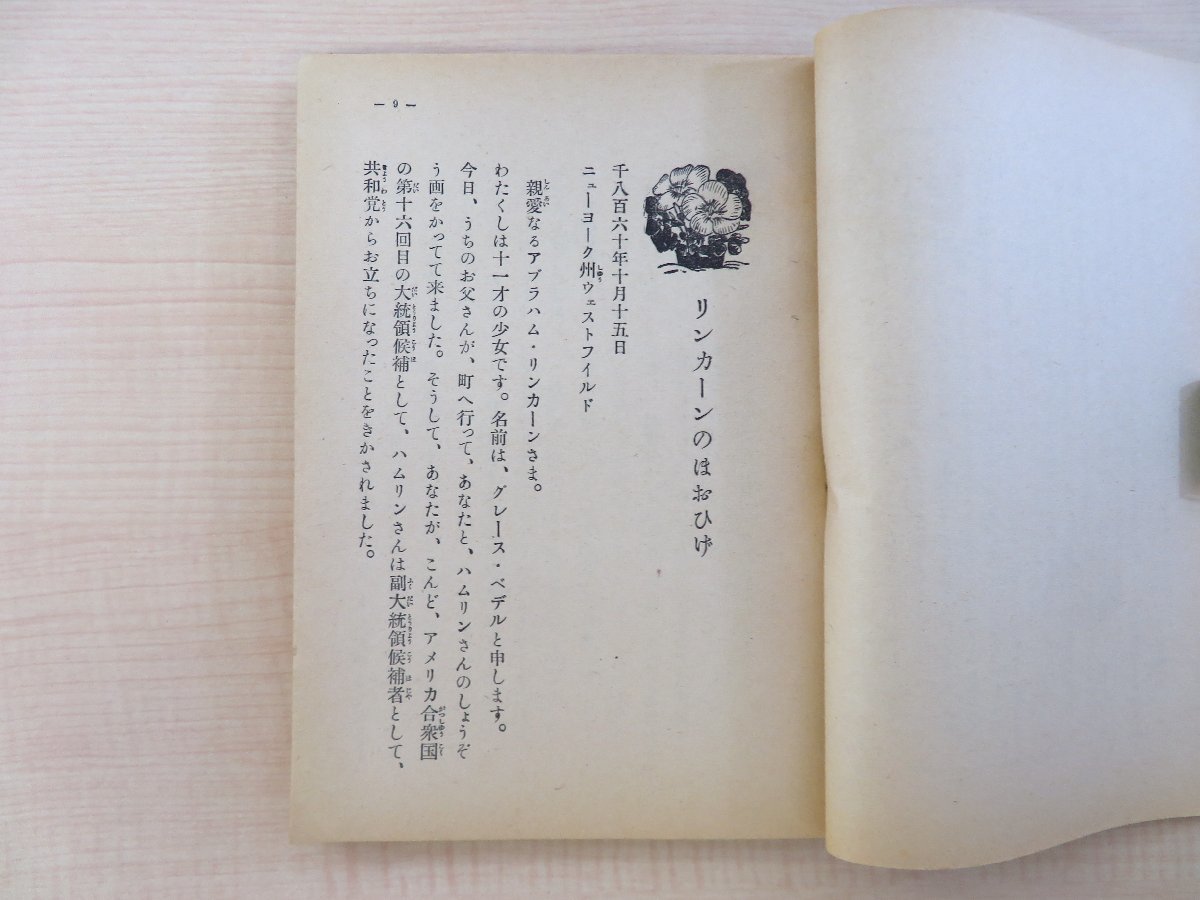 リンカーンのほおひげ
千八百六十年十月十五日
ニューヨーク州ウェストフイルド
親愛なるアブラハム・リンカーンさま。
わたくしは十一才の少女です。名前は、グレース・ベデルと申します。
今日、うちのお父さんが、町へ行って、あなたと、ハムリンさんのしょうぞ
う画をかってて来ました。そうして、あなたが、こんど、アメリカ合衆国
の第十六回目の大統領候補として、ハムリンさんは副大統領候補者として、
共和党からお立ちになったことをきかされました。
— 9 —